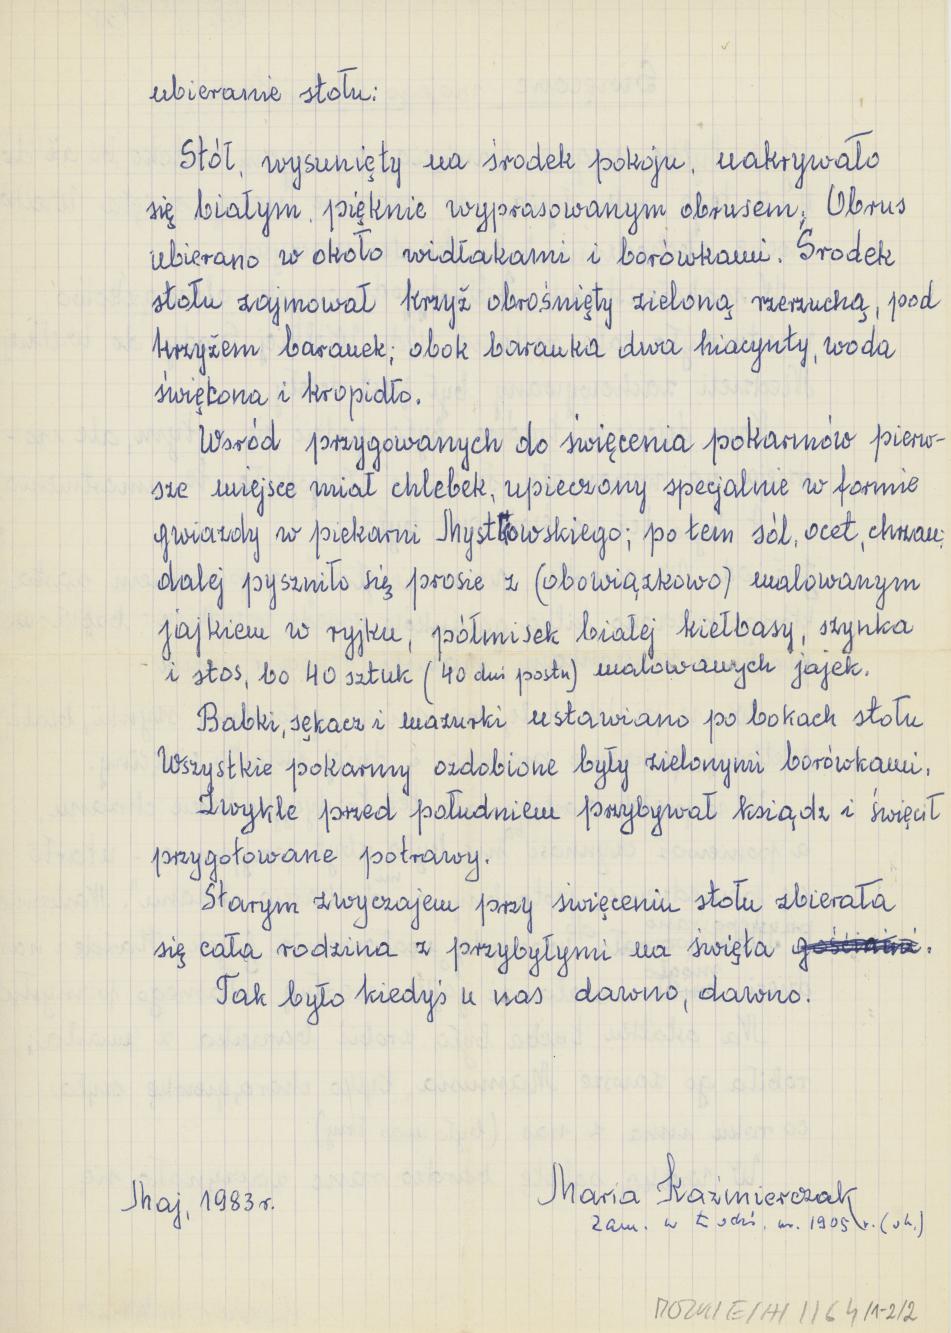 ubieranie stołu:
Stół, wysunięty na środek pokoju, nakrywało
się białym, pięknie wyprasowanym obrusem; Obrus
ubierano w około widłakami i borówkami. Środek
stołu zajmował krzyż obrośnięty zieloną rzerzuchą, pod
krzyżem baranek; obok baranka dwa hiacynty, woda
święcona i kropidło.
Wsród przygowanych do święcenia pokarmów pierw-
sze miejsce miał chlebek, upieczony specjalnie w formie
gwiazdy w piekarni Mystkowskiego; potem sól, ocet, chrzan;
dalej pyszniło się prosie z (obowiązkowo) malowanym
jajkiem w ryjku, półmisek białej kiełbasy, szynka
i stos, bo 40 sztuk (40 dni postu) malowanych jajek.
Babki, sękacz i mazurki ustawiano po bokach stołu
Wszystkie pokarmy ozdobione były zielonymi borówkami.
Zwykle przed południem przybywał ksiądz i święcił
przygotowane potrawy.
Starym zwyczajem przy święceniu stołu zbierała
się cała rodzina z przybyłymi na święta gośćmi.
Tak było kiedyś u nas dawno, dawno.
Maj, 1983 r.
Maria Kaźmierczak
zam. w Łodzi, ur. 1905 r. (ok.)